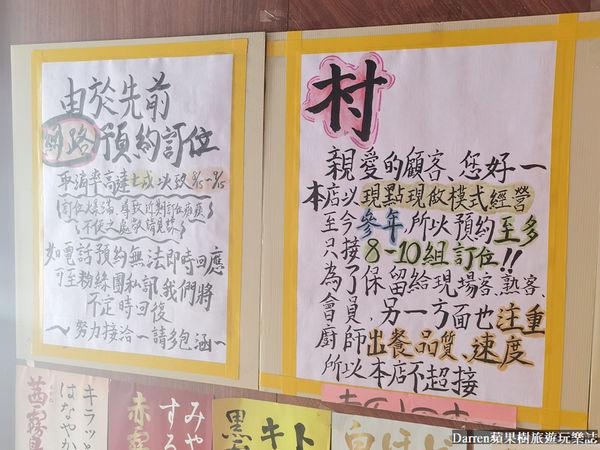 由於先前
網路預約訂位
取消率高達七成以致
訂位大爆滿,導致近期訂位癱瘓
不便之處敬請見諒
如電話預約無法即時回應
可至粉絲團私訊,我們將
不定時回復
~努力接洽—請多包涵~
村
親愛的顧客、您好—
本店以現點現做模式經營
至今參年,所以預約至多
只接8-10組訂位!!
為了保留給現場客、熟客
會員,另一方面也注重
廚師出餐品質、速度
所以本店不超接
茜霧島
キラッと
はなやか
赤霧
みや
する
黒
キト
白ほ
Darren蘋果樹旅遊玩樂誌